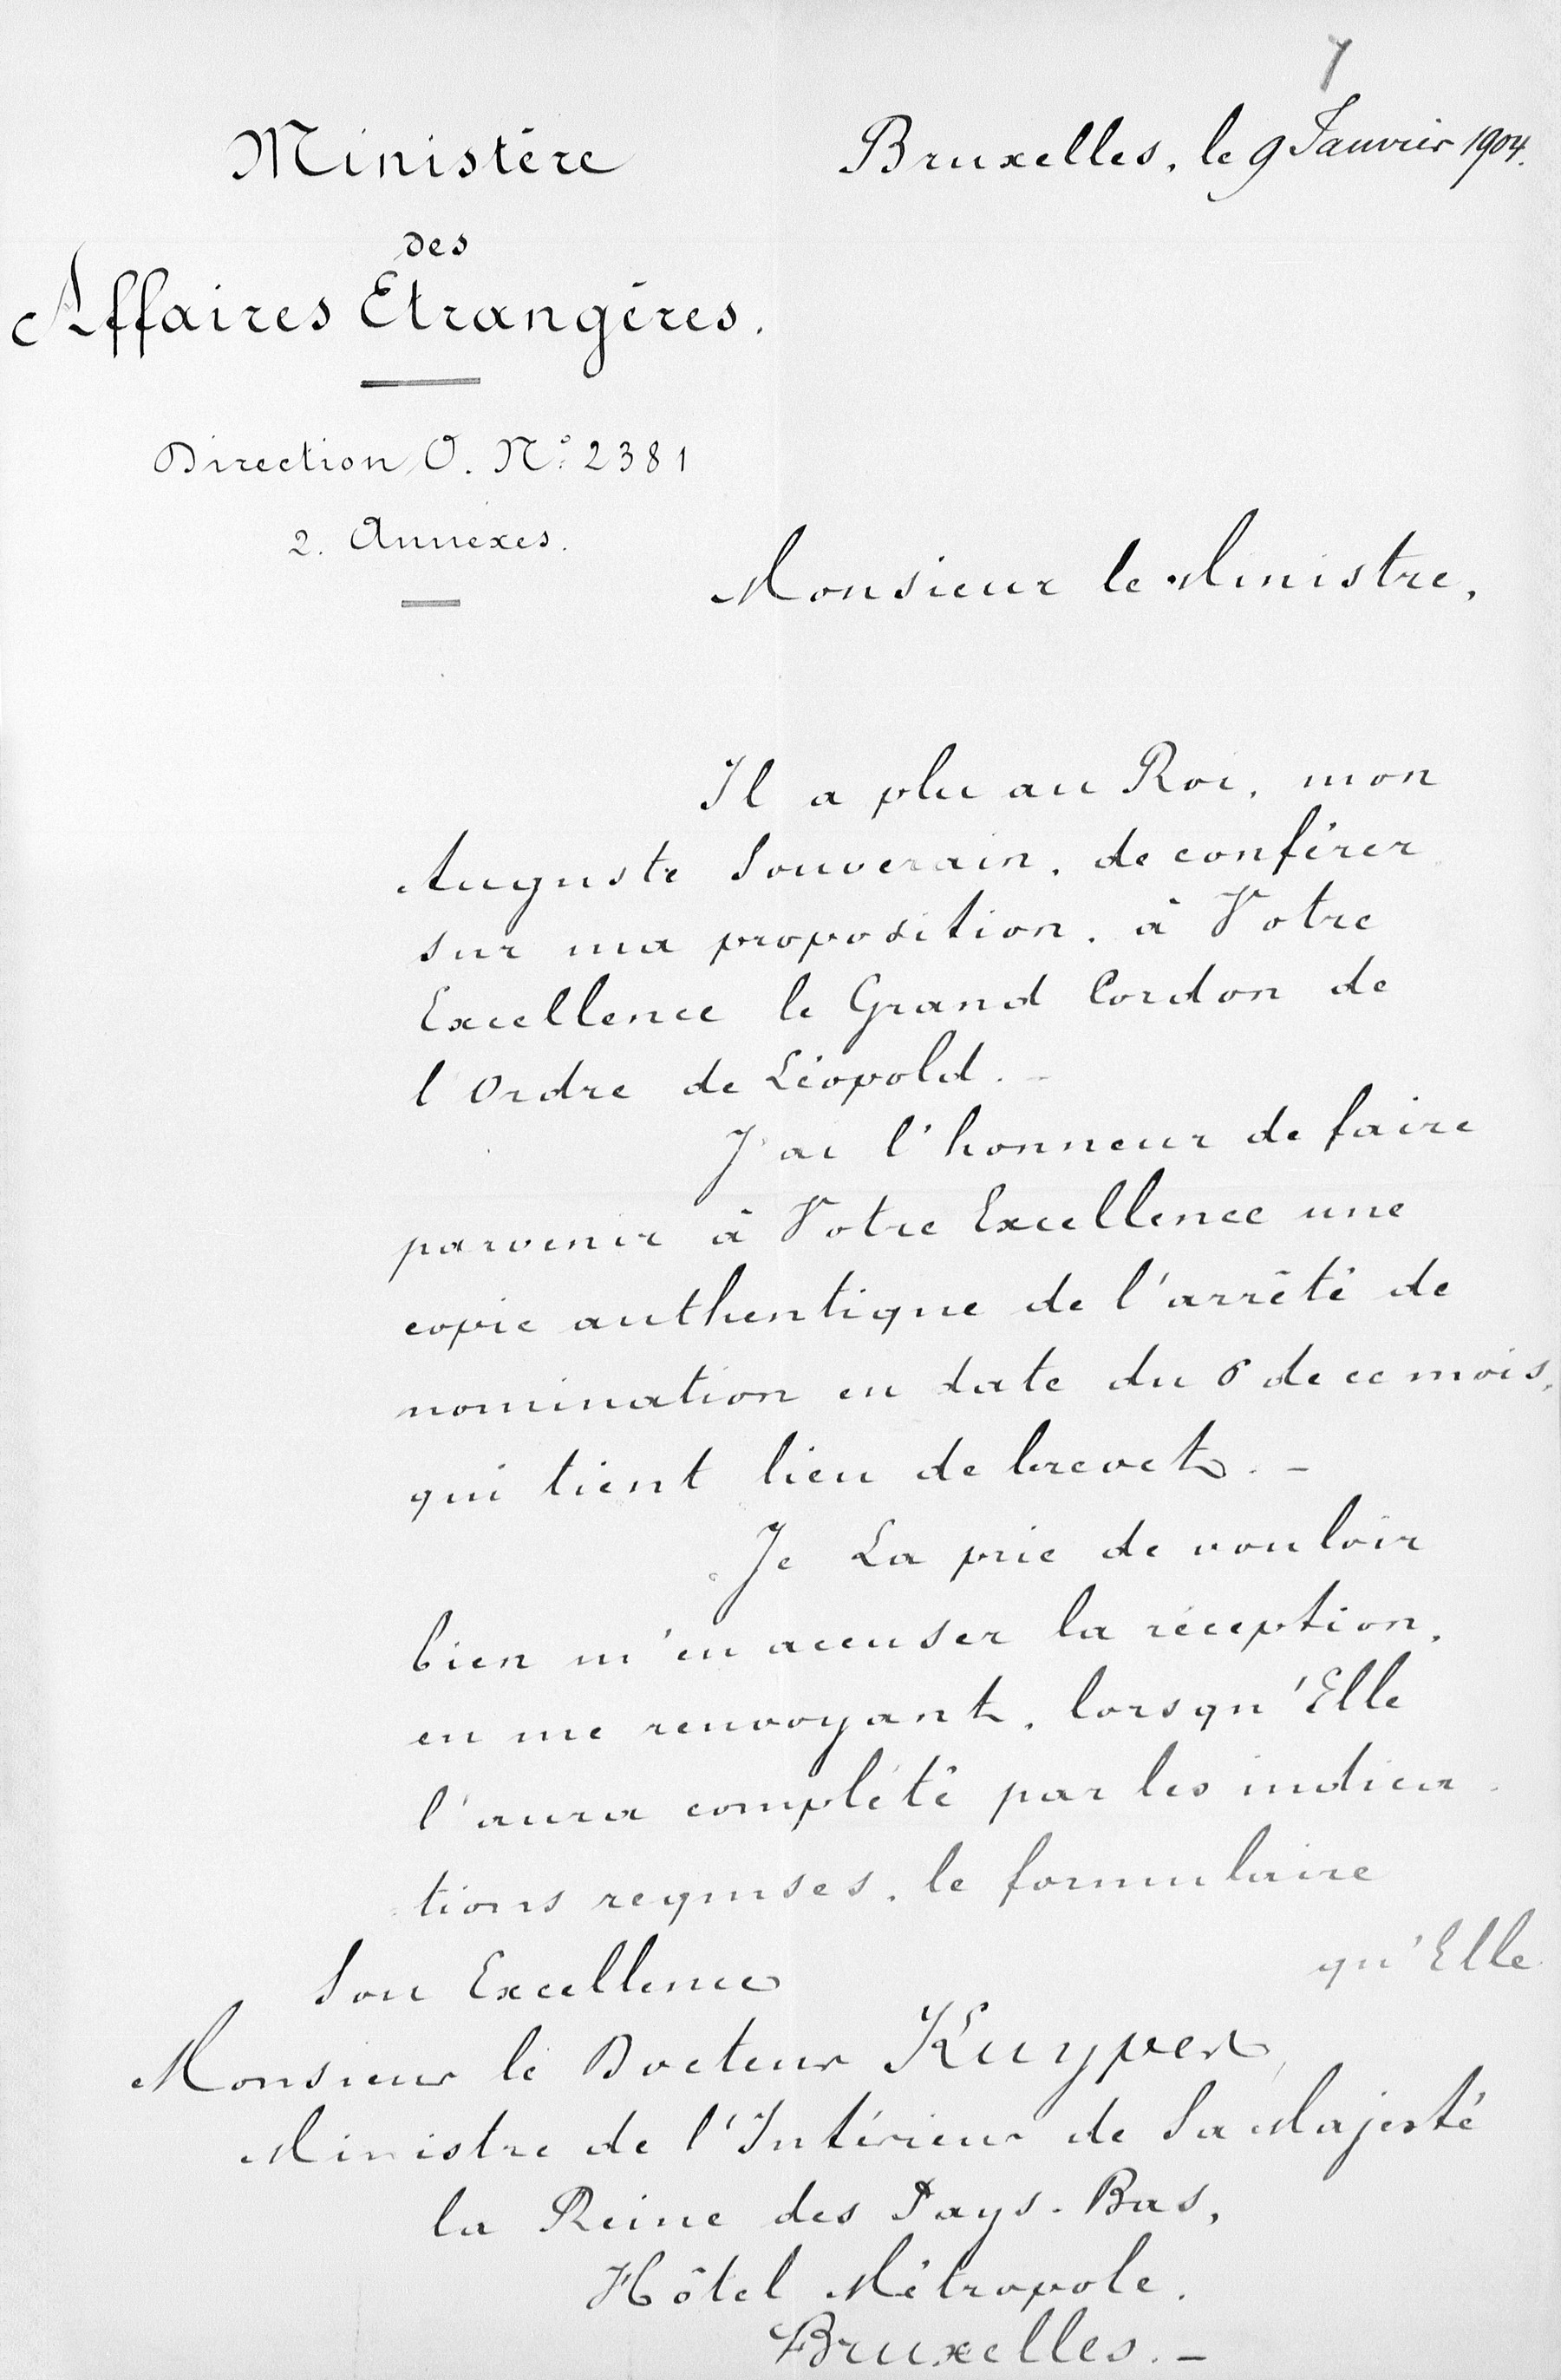 Ministère
des
Affaires Etrangères.
Direction O. N.° 2381
2. Annexes.
Bruxelles, le 9 Janvier 1904.
Monsieur le Ministre,
Il a plu au Roi, mon
Auguste Souverain, de conférer
sur ma proposition, à Votre
Excellence le Grand Cordon de
l'Ordre de Léopold. –
J'ai l'honneur de faire
parvenir à Votre Excellence une
copie authentique de l'arrêté de
nomination en date du 6 de ce mois,
qui tient lieu de brevet. –
Je La prie de vouloir
bien m'en accuser la réception,
en me renvoyant, lorsqu'Elle
l'aura complété par les indica
tions requises, le formulaire
qu'Elle
Son Excellence
Monsieur le Docteur Kuyper,
Ministre de l'Intérieur de Sa Majesté
la Reine des Pays-Bas,
Hôtel Métropole.
Bruxelles. –